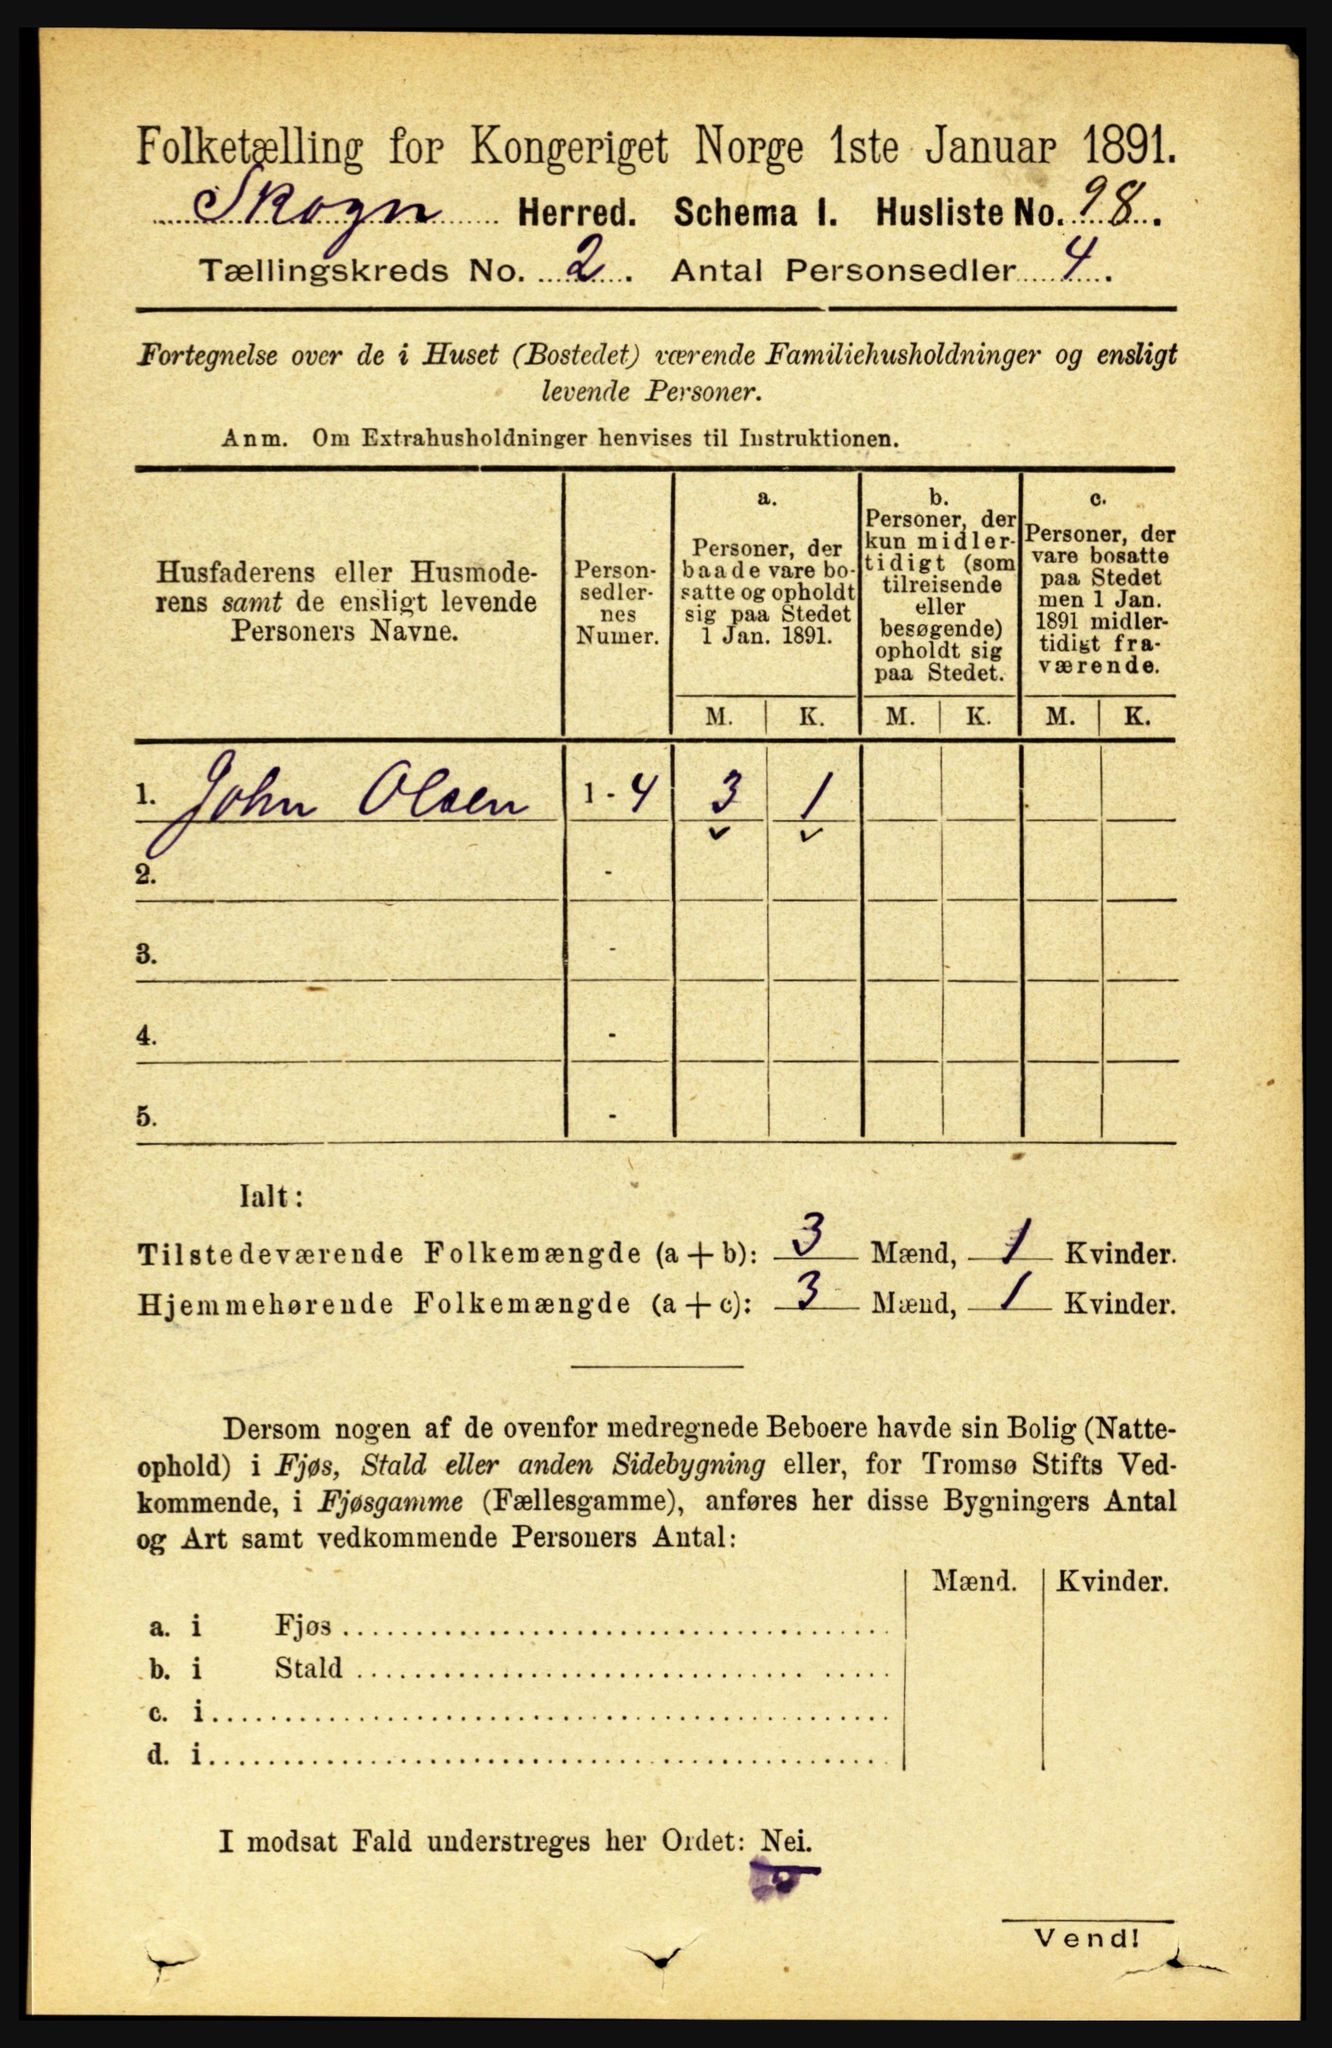 Folketælling for Kongeriget Norge 1ste Januar 1891.
Skogn Herred. Schema I. Husliste No. 98.
Tællingskreds No. 2. Antal Personsedler 4.
Fortegnelse over de i Huset (Bostedet) værende Familiehusholdninger og ensligt
levende Personer.
Anm. Om Extrahusholdninger henvises til Instruktionen.
Husfaderens eller Husmode-
rens samt de ensligt levende
Personers Navne.
Person-
sedler-
nes
Numer.
a.
Personer, der
baade vare bo-
satte og opholdt
sig paa Stedet
1 Jan. 1891.
b.
Personer, der
kun midler-
tidigt (som
tilreisende
eller
besøgende)
opholdt sig
paa Stedet.
c.
Personer, der
vare bosatte
paa Stedet
men 1 Jan.
1891 midler-
tidigt fra-
værende.
M. K. M. K. M. K.
1. John Olsen 1 - 4 3 1
2. -
3. -
4. -
5. -
Ialt:
Tilstedeværende Folkemængde (a + b): 3 Mænd, 1 Kvinder.
Hjemmehørende Folkemængde (a + c): 3 Mænd, 1 Kvinder.
Dersom nogen af de ovenfor medregnede Beboere havde sin Bolig (Natte-
ophold) i Fjøs, Stald eller anden Sidebygning eller, for Tromsø Stifts Ved-
kommende, i Fjøsgamme (Fællesgamme), anføres her disse Bygningers Antal
og Art samt vedkommende Personers Antal:
Mænd. Kvinder.
a. i Fjøs
b. i Stald
c. i
d. i
I modsat Fald understreges her Ordet: Nei.
Vend!